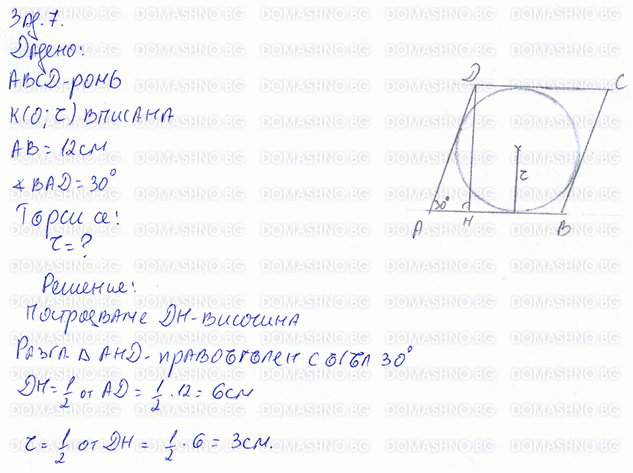 Зад. 7.
Дадено:
ABCD-ромб
K(O; r) вписана
AB = 12 см
∢ BAD = 30°
Торси се:
r = ?
Решение:
Построяваме DH-височина
Разгл Δ AHD - правоъгълен с ъгъл 30°
DH = 1/2 от AD = 1/2 . 12 = 6 см
r = 1/2 от DH = 1/2 . 6 = 3 см.
D C
r
30°
A H B
DOMASHNO.BG